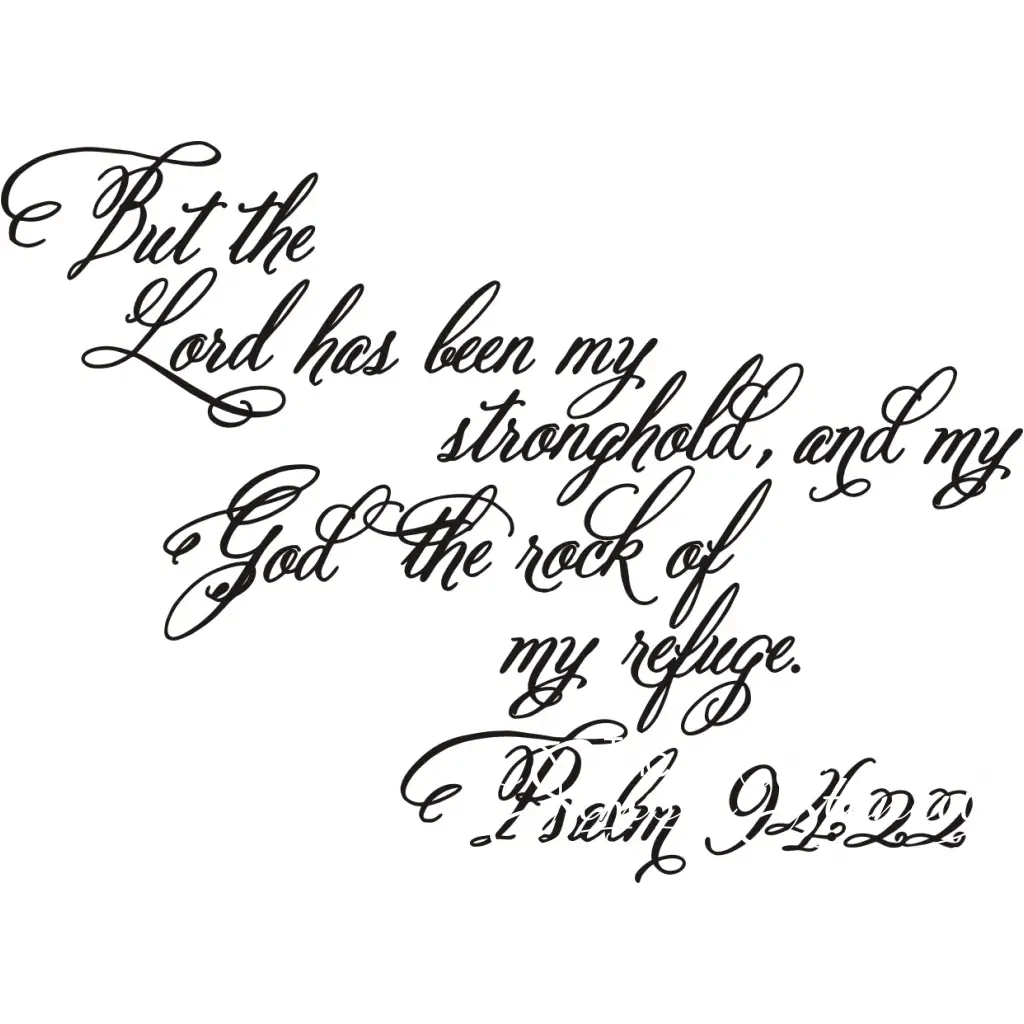 But the
Lord has been my
stronghold, and my
God the rock of
my refuge.
Psalm 94:22